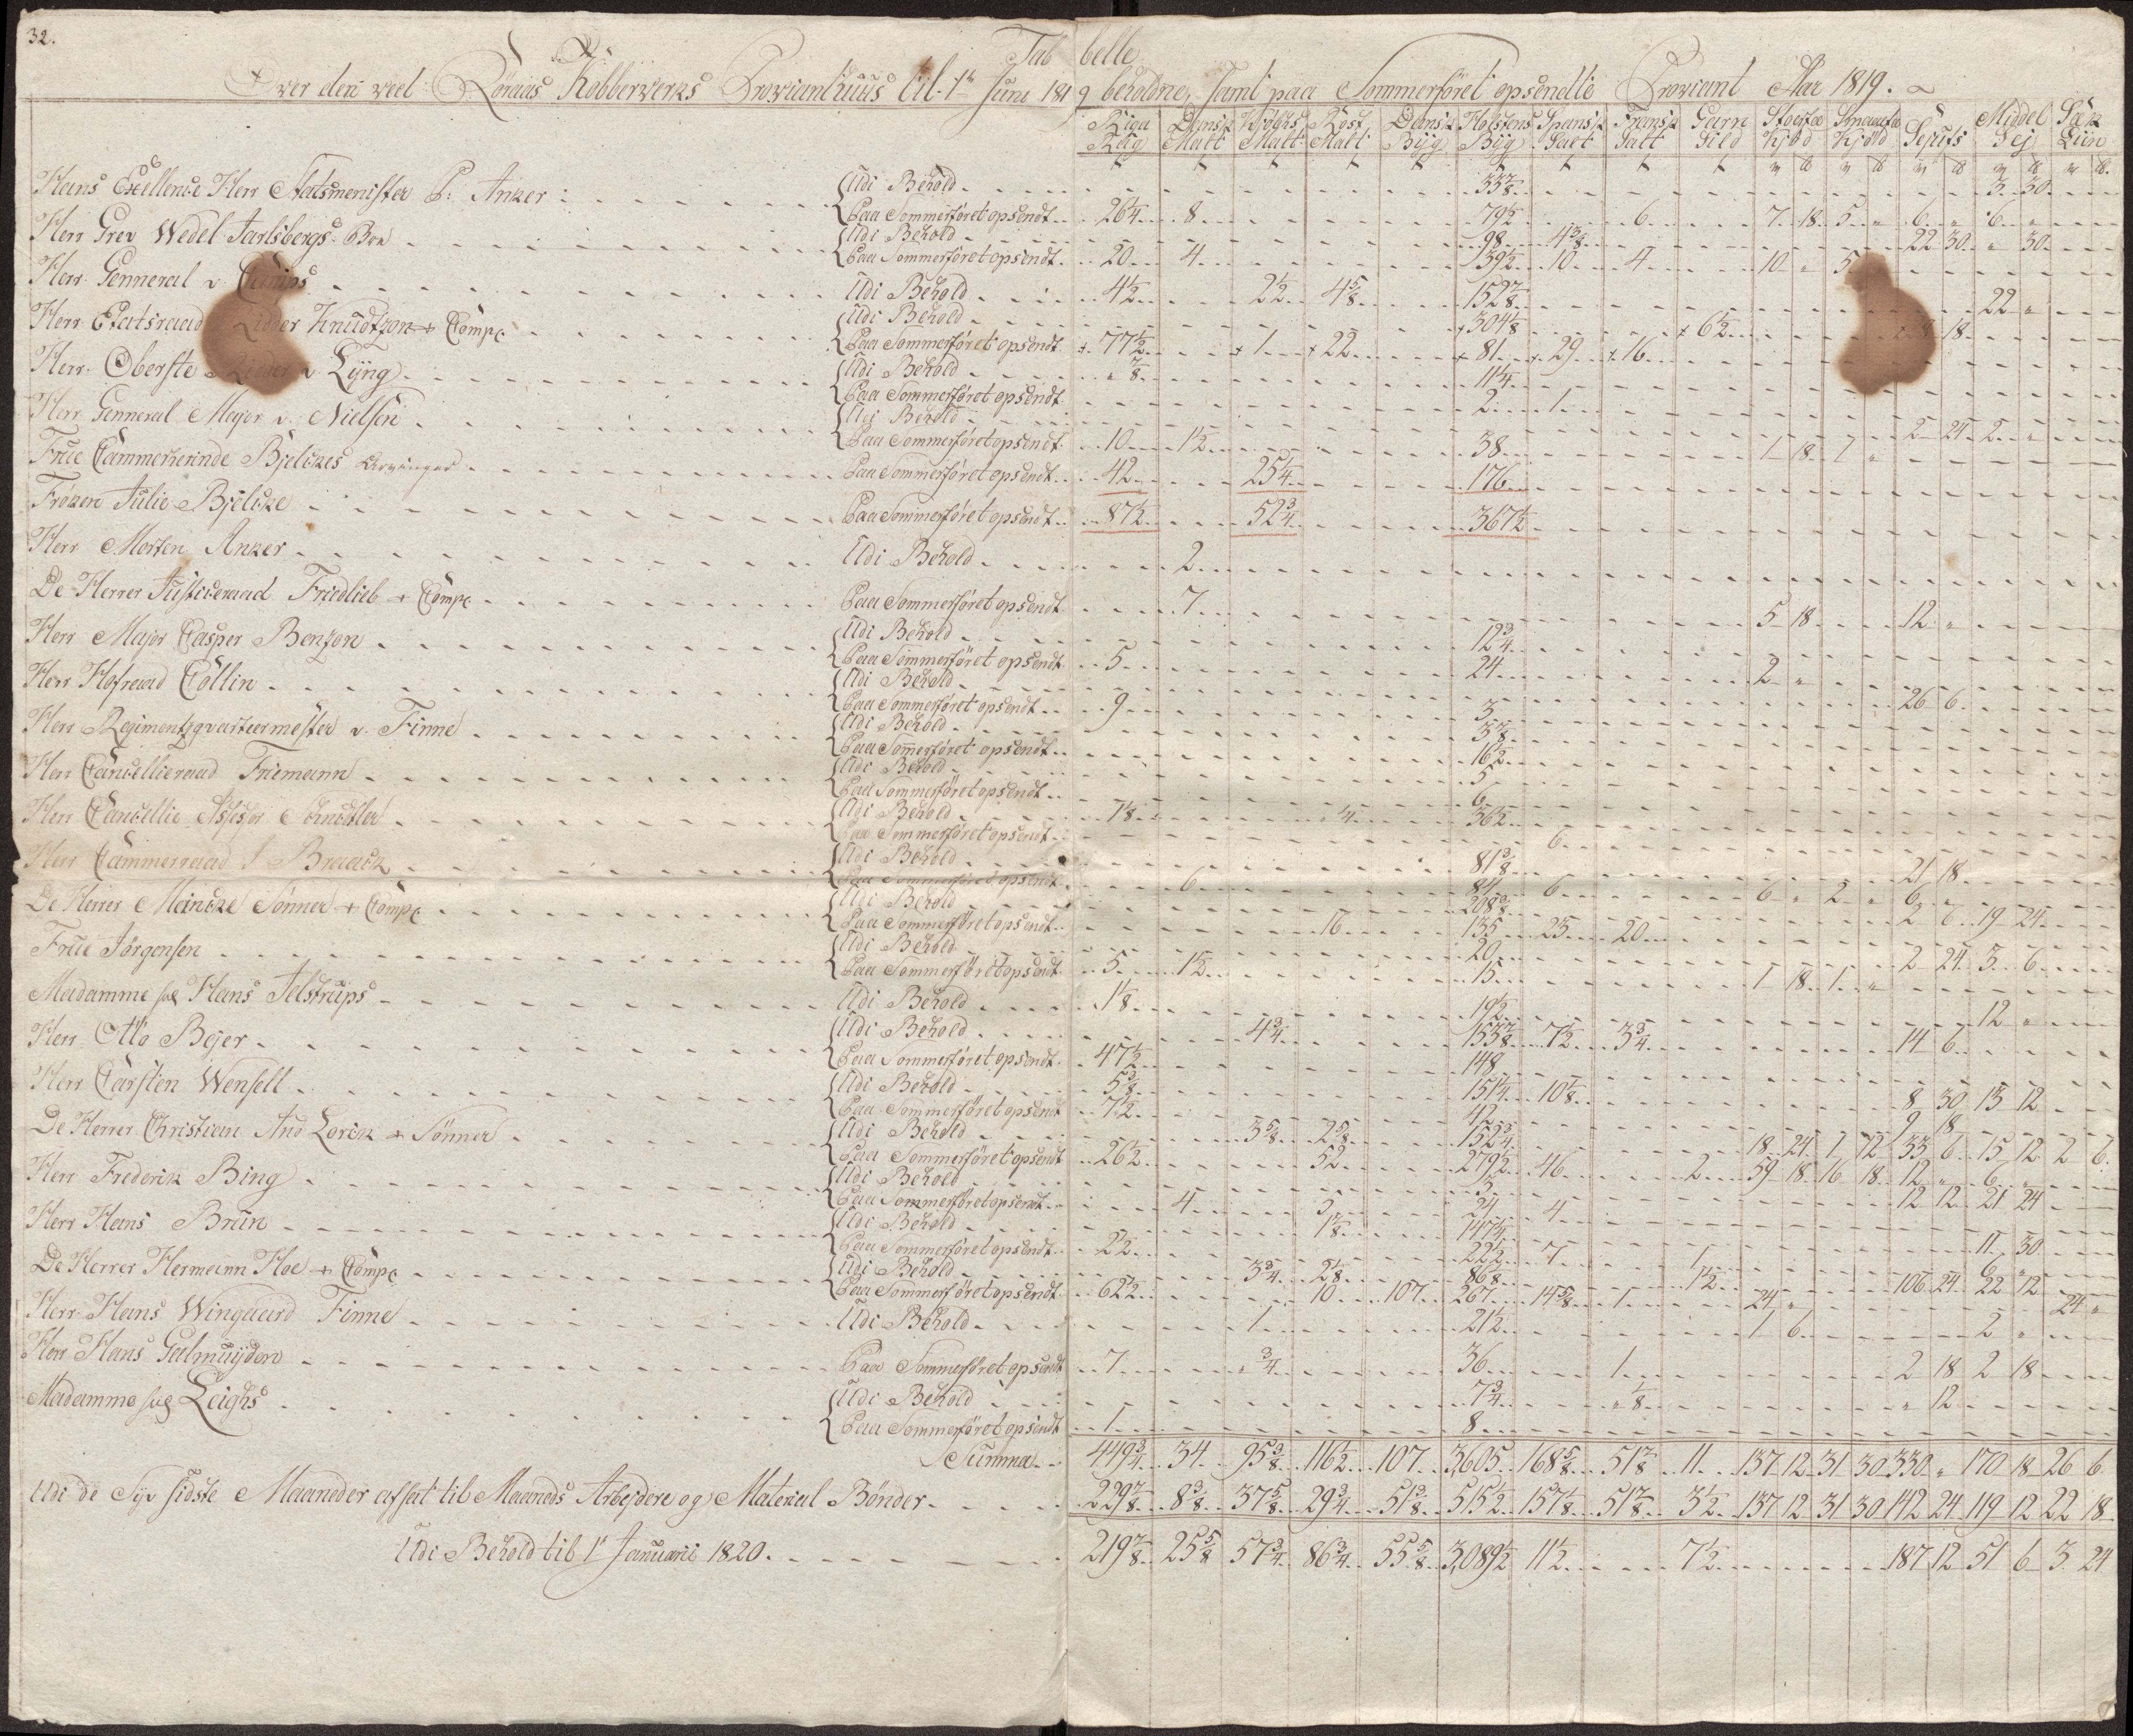 32.
Tabbelle
Over den veel: Röraas Kobberverks Proviant huus til 1te Juni 1819 beholdne, samt paa Sommerföret opsendte Proviant Aar 1819.
Riga Rug Dansk Malt Malt Rost Malt Dansk Byg Holstens Byg Spansk Salt Fransk Salt Garn Sild Kjöd Smaaefæ Kjöd Middel Sej Liin
Hans Exellence Herr Statsmenister P: Anker : Udi Behold 33 7/8 3 30
Paa Sommerföret opsendt 26 1/4 8 79 1/2 6 7 18 5 " 6 " 6 "
Herr Grev Wedel Jarlsbergs Boe Udi Behold 98 4 3/8 22 30 " 30
Paa Sommerföret opsendt 20 4 139 1/2 10 4 10 " 5
Herr Genneral v Udi Behold 4 1/2 2 1/2 4 5/8 152 7/8 22 "
Herr Etatsraad Knudtzon & Comp Udi Behold 304 1/8 6 1/2 18
Paa Sommerföret opsendt 77 1/2 1 22 81 29 16
Herr Oberste v Lÿng Udi Behold " 7/8 11 1/4
Paa Sommerföret opsendt 2 1
Herr Genneral Major v. Nielsen Udi Behold 2 24 2 "
Paa Sommerföret opsendt 10 1 1/2 38 1 18 1 "
Frue Cammerherinde Bjelckes Arvinger Paa Sommerföret opsendt 42 25 1/4 176
Fröken Julie Bjelcke Paa Sommerföret opsendt 87 1/2 52 3/4 367 1/2
Herr Morten Anker Udi Behold 2
De Herrer Justiceraad Friedlieb & Comp Paa Sommerföret opsendt 7 5 18 12 "
Herr Major Casper Benzon Udi Behold 12 3/4
Paa Sommerföret opsendt 5 24 2 "
Herr Hofraad Collin Udi Behold 26 6
Paa Sommerföret opsendt 9 3
Herr Regimentzqvarteermester v. Finne Udi Behold 3 7/8
Paa Sommerföret opsendt 16 1/2
Herr Cancelliraad Friemann Udi Behold 5
Paa Sommerföret opsendt 6
Herr Cancellie Assessor Udi Behold 1 1/8 4 36 1/2
Paa Sommerföret opsendt 6
Herr Cammerraad Braack Udi Behold 81 3/8 21 18
Paa Sommerföret opsendt 6 84 6 6 " 2 " 6 "
De Herrer Meincke Sönner & Comp Udi Behold 208 3/8 2 6 19 24
Paa Sommerföret opsendt 16 135 23 20
Frue Jörgensen Udi Behold 20 2 24 3 6
Paa Sommerföret opsendt 5 1 1/2 15 1 18 1 "
Madamme sal Hans Jelstrups Udi Behold 1 1/8 19 1/2 12 "
Herr Otto Bejer Udi Behold 4 3/4 153 7/8 7 1/2 3 3/4 14 6
Paa Sommerföret opsendt 47 1/2 148
Herr Carsten Wensell Udi Behold 5 3/8 151 1/4 10 1/8 8 30 13 12
Paa Sommerföret opsendt 7 1/2 42 9 18
De Herrer Christian And Lorck & Sönner Udi Behold 3 5/8 2 5/8 152 3/4 18 24 1 12 33 6 15 12 2 6
Paa Sommerföret opsendt 26 1/2 52 279 1/2 46 2 59 18 16 18 12 " 6 "
Herr Frederik Bing Udi Behold 12 12 21 24
Paa Sommerföret opsendt 4 5 34 4
Herr Hans Brun Udi Behold 147 1/4 11 30
Paa Sommerföret opsendt 22 1/2 7 1 6 "
De Herrer Hermann Hoe & Comp Udi Behold 3 3/4 2 1/8 86 1 1/2 106 24 22 12
Paa Sommerföret opsendt 62 1/2 10 107 267 14 5/8 1 24 " 24 "
Herr Hans Wingaard Finne Udi Behold 1 21 1/2 1 6 2 "
Herr Hans Galmuÿden Paa Sommerföret opsendt 7 " 3/4 36 1 2 18 2 18
Madamme sal Leighs Udi Behold 7 3/4 " 1/8 " 12
Paa Sommerföret opsendt 1 8
Summa 449 3/4 34 95 3/8 116 1/2 107 3,605 168 5/8 51 7/8 11 137 12 31 30 330 " 170 18 26 6
Udi de Syv sidste Maaneder afsat til Maaneds Arbejdere og Material Bönder 229 7/8 8 3/8 37 5/8 29 3/4 51 3/8 515 1/2 157 1/8 51 7/8 3 1/2 137 12 31 30 142 24 119 12 22 18
Udi Behold til 1te Januarii 1820. 219 7/8 25 5/8 57 3/4 86 3/4 55 5/8 3,089 1/2 11 1/2 7 1/2 187 12 51 6 3 24